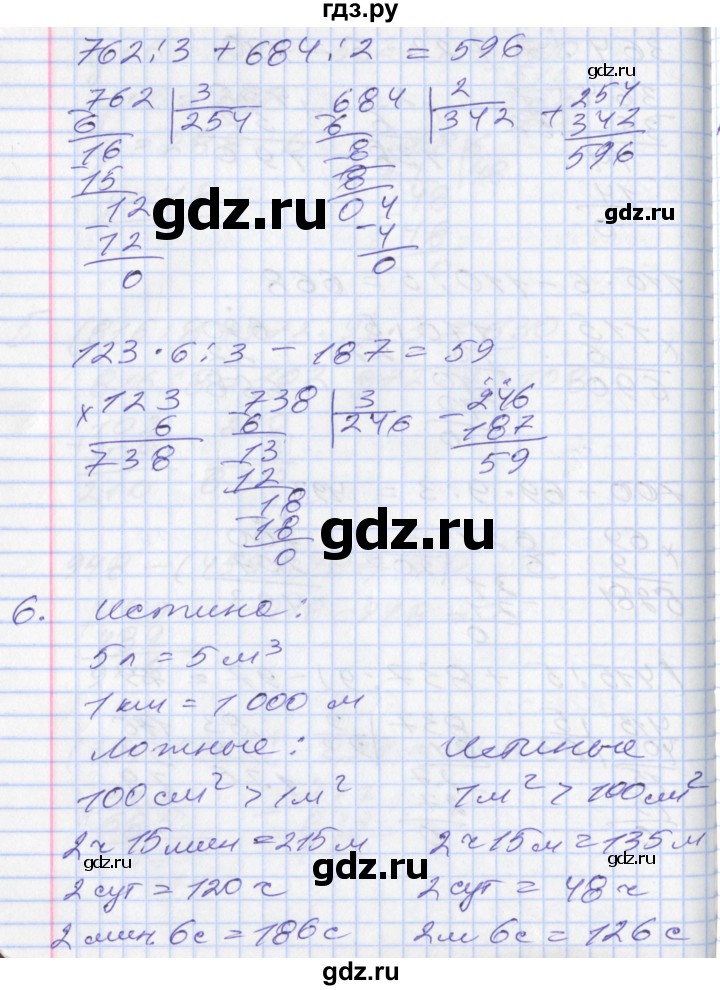 гдз.ру
762:3 + 684:2 = 596
762 | 3
6 | 254
16
15
12
12
0
684 | 2
6 | 342
8
8
04
4
0
+ 254
342
596
gdz.ru
gdz.ru
gdz.ru
123 · 6 : 3 - 187 = 59
× 123
6
738
738 | 3
6 | 246
13
12
18
18
0
- 246
187
59
gdz.ru
gdz.ru
6. Истина:
5л = 5 м³
1 км = 1 000 м
Ложные: Истиные
100 см² > 1 м² 1 м² > 100 см²
2 ч 15 мин = 215 м 2 ч 15 м = 135 м
2 сут = 120 ч 2 сут = 48 ч
2 мин. 6 с = 186 с 2 м 6 с = 126 с
gdz.ru
gdz.ru
gdz.ru
gdz.ru